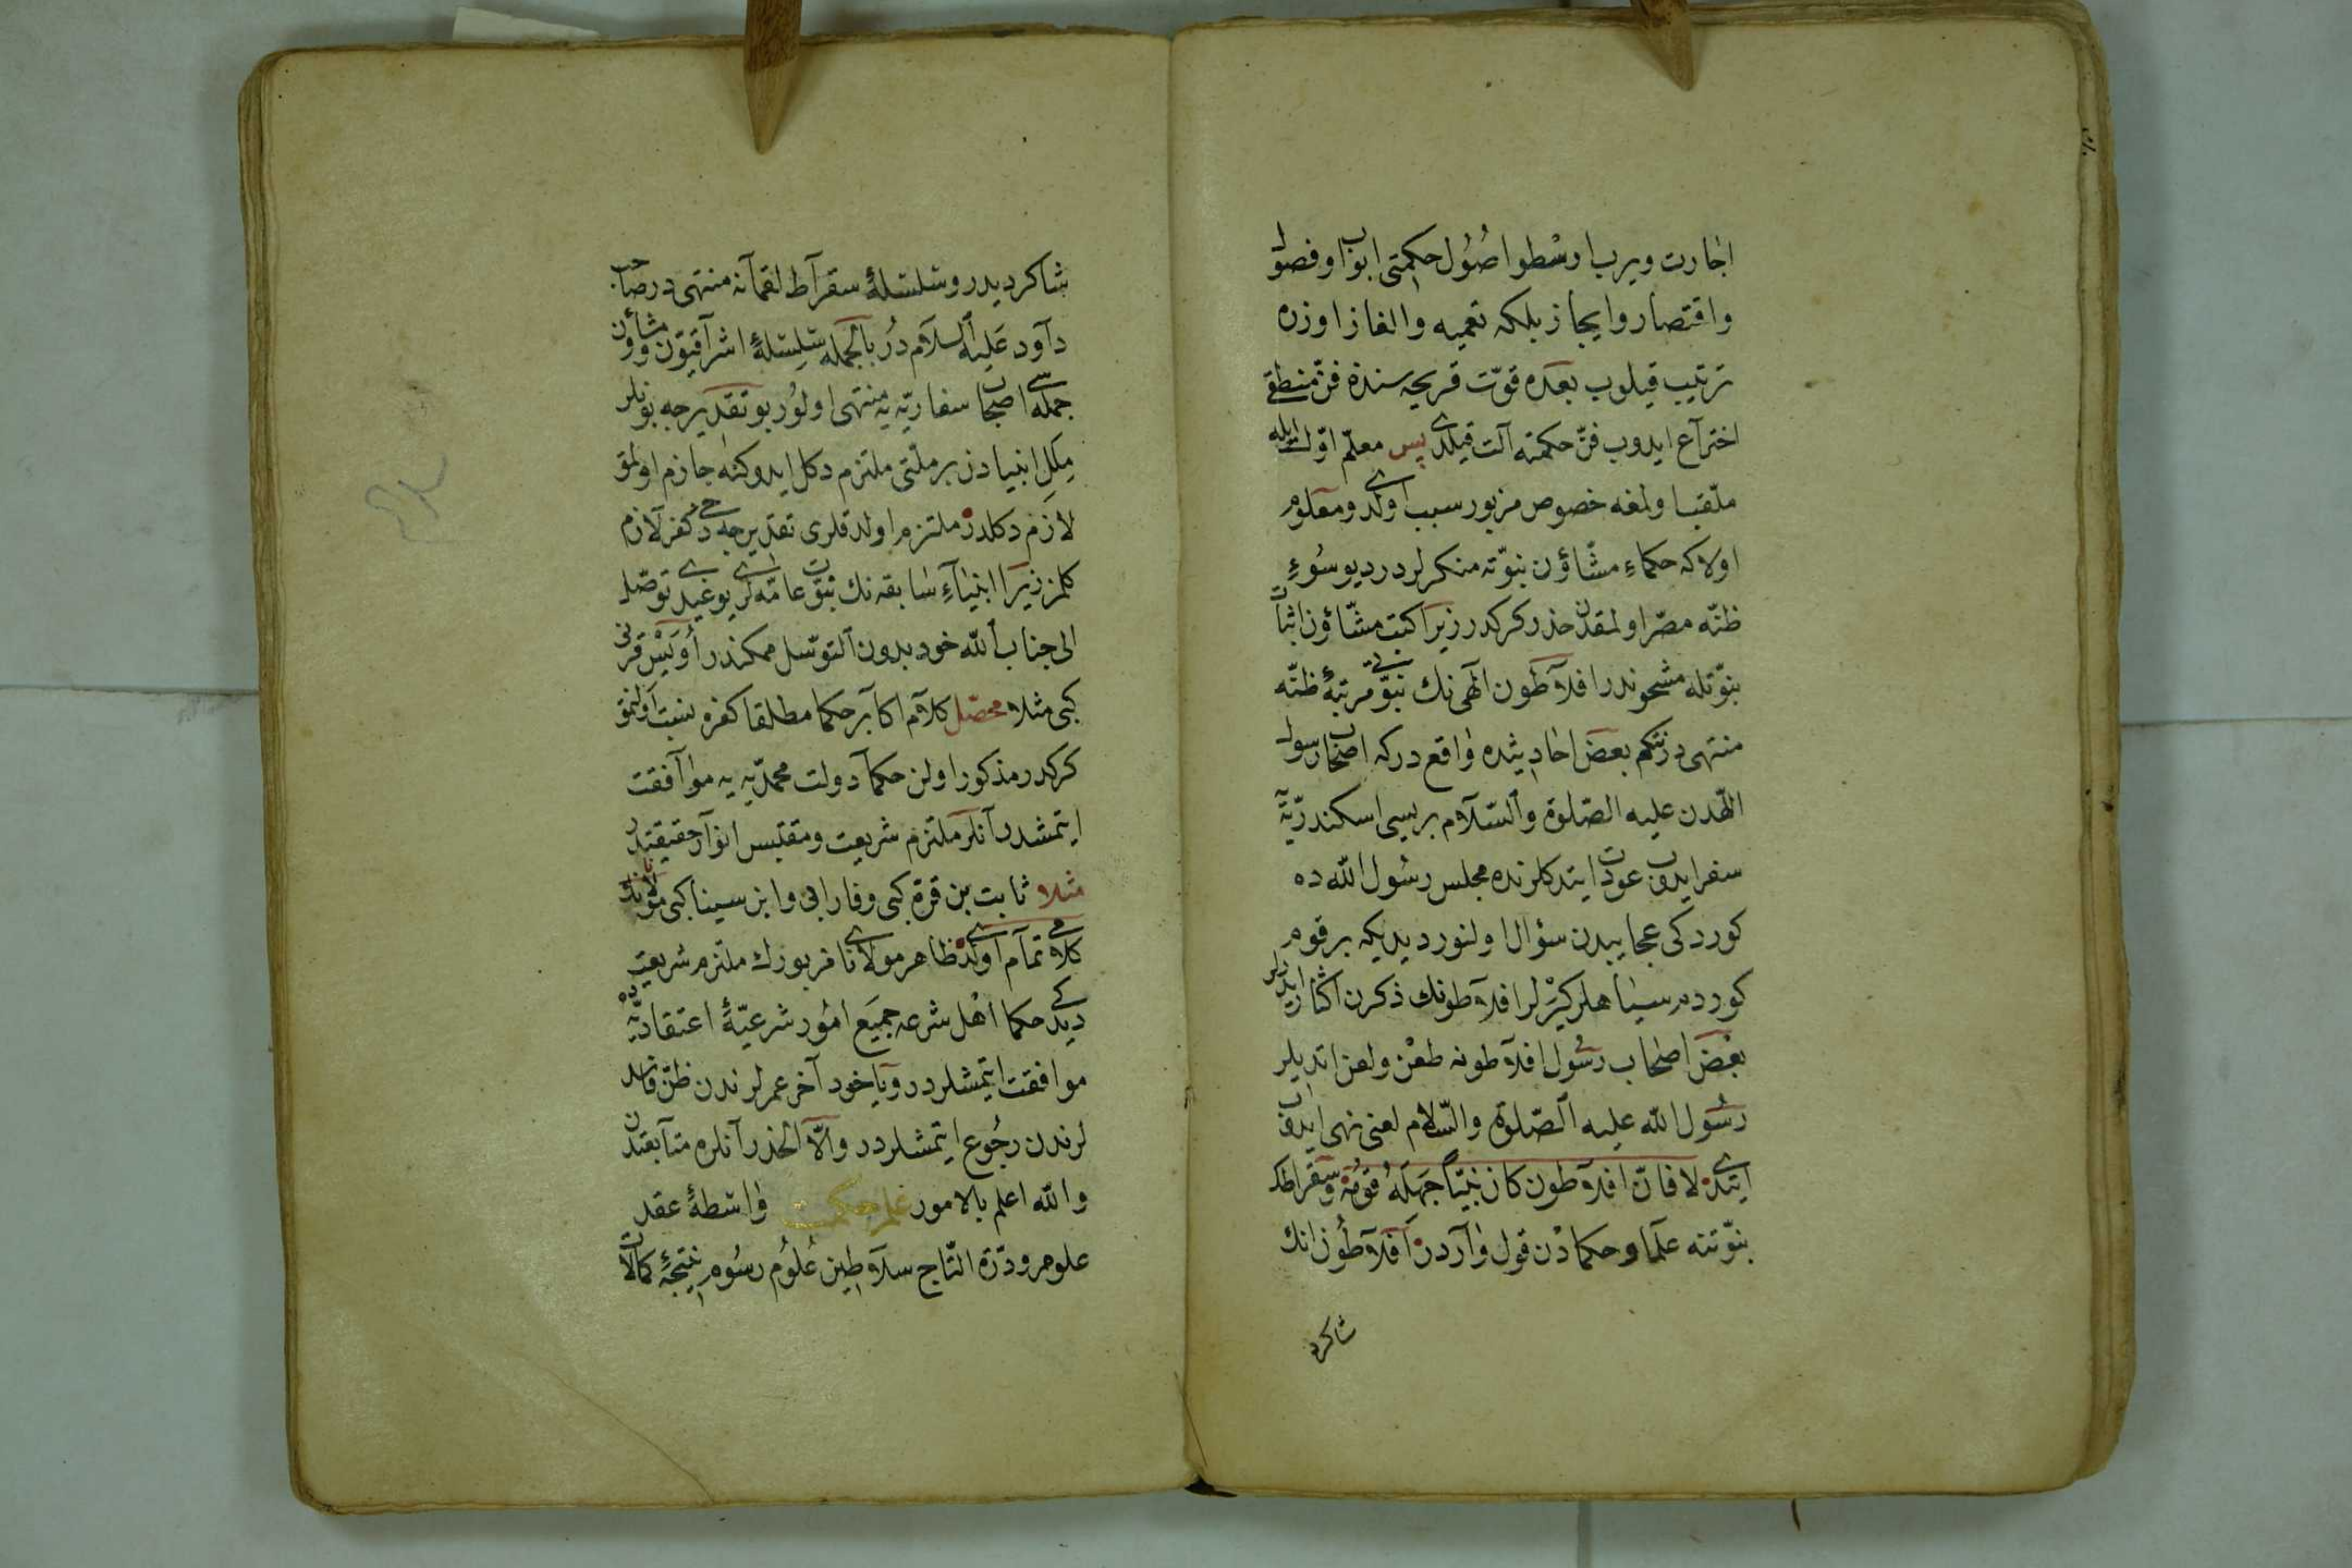 اجازت ويريب ارسطو اصول حكمتى ابواب و فصول
و اقتصار و ايجاز بلكه تعميه و الغاز اوزره
ترتيب قيلوب بعده قوّت قريحه سنده فنّ منطقى
اختراع ايدوب فنّ حكمته آلت قيلدى پس معلّم اوّل ايله
ملقّب اولمغه خصوص مزبور سبب اولدى و معلوم
اولا كه حكماء مشّاؤن نبوّته منكرلردر ديو سوء
ظنّه مصرّ اولمقدن حذر كركدر زيرا كتب مشّاؤن اثبات
نبوّتله مشحوندر افلاطون الهى نك نبوّتى مرتبۀ ظنّه
منتهى در نتكم بعض احاديثده واقع در كه اصحاب رسول
اللّهدن عليه الصّلوة و السّلام بريسى اسكندريّه يه
سفر ايدوب عودت ايتدكلرنده مجلس رسول اللّه ده
كوردكى عجايبدن سؤال اولنور ديديكه بر قوم
كوردم سياهلر كيرلر افلاطونك ذكرن اكثار ايدرلر
بعض اصحاب رسول افلاطونه طعن و لعن ايتديلر
رسول اللّه عليه الصّلوة و السّلام لعنى نهى ايدوب
ايتدى لا فانّ افلاطون كان نبيّا جهله قومه و سقراطك
نبوّتنه علما و حكمادن قول واردر افلاطون انك
شاكرد
شاكرديدر و سلسلۀ سقراط لقمانه منتهى در صاحب
داود عليه السلام در بالجمله سلسلۀ اشراقيّون و مشاؤن
جمله سى اصحاب سفاريّه يه منتهى اولور بو تقديرجه بونلر
ملل انبيادن بر ملّتى ملتزم دكل ايدوكنه جازم اولمق
لازم دكلدر ملتزم اولمدقلرى تقديرجه دخى كفر لازم
كلمز زيرا انبياء سابقه نك نبوّت عامّه لرى يوغيدى توصّل
الى جناب اللّه خود بدون التوسّل ممكندر اويس قرنى
كبى مثلا محصّل كلام اكابر حكما مطلقا كفره نسبت اولنمق
كركدر مذكور اولن حكما دولت محمّديّه يه موافقت
ايتمشدر آنلر ملتزم شريعت و مقتبس انوار حقيقتدر
مثلا ثابت بن قرة كبى و فارابى و ابن سينا كبى مولانانك
كلامى تمام اولدى ظاهر مولانا فربورك ملتزم شريعت
ديدكى حكما اهل شرعه جميع امور شرعيّۀ اعتقاديّه ده
موافقت ايتمشلردر و يا خود آخر عمرلرندن ظنّ فاسد
لرندن رجوع ايتمشلردر و الّا الحذر آنلره متابعتدن
و اللّه اعلم بالامور علم حكمت واسطۀ عقد
علوم و درّة التّاج سلاطين علوم رسوم نتيجۀ كمالات